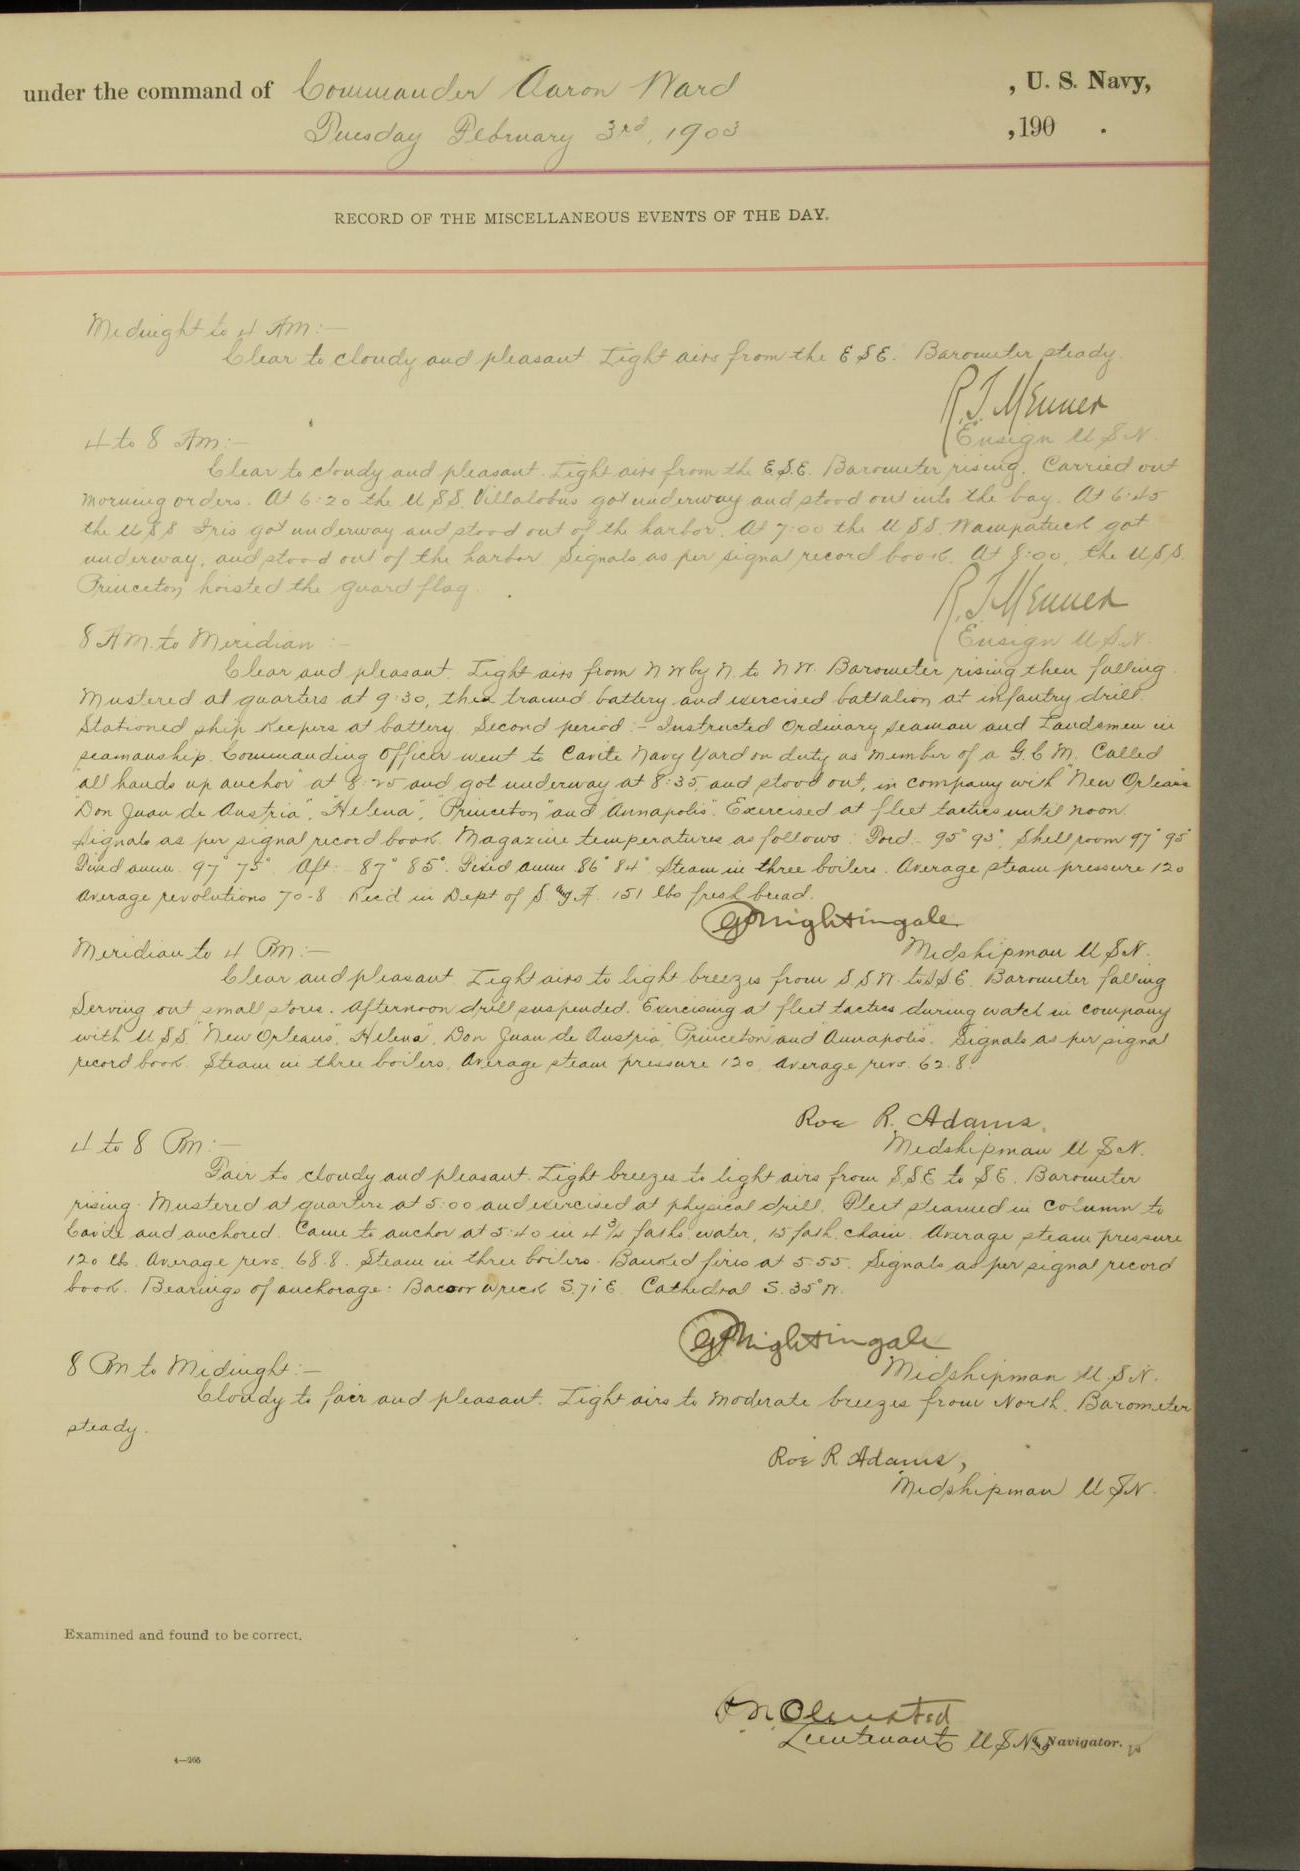 under the command of Commander Aaron Ward , U. S. Navy,
Tuesday February 3rd, 1903 ,190 .
RECORD OF THE MISCELLANEOUS EVENTS OF THE DAY.
Midnight to 4 AM:—
Clear to cloudy and pleasant. Light airs from the ESE. Barometer steady.
R.T. Menner
Ensign U.S.N.
4 to 8 AM:—
Clear to cloudy and pleasant. Light airs from the E.S.E. Barometer rising. Carried out
morning orders. At 6:20 the U.S.S. Villalobus got underway and stood out into the bay. At 6:45
the U.S.S Iris got underway and stood out of the harbor. At 7:00 the U.S.S. Wampatuck got
underway, and stood out of the harbor. Signals as per signal record book. At 8:00, the U.S.S.
Princeton hoisted the guard flag.
R.T. Menner
Ensign U.S.N.
8 A.M. to Meridian:—
Clear and pleasant. Light airs from NW by N. to NW. Barometer rising then falling.
Mustered at quarters at 9:30, then trained battery and exercised battalion at infantry drill.
Stationed ship keepers at battery. Second period:— Instructed Ordinary seaman and Landsmen in
seamanship. Commanding Officer went to Cavite Navy Yard on duty as member of a G.C.M. Called
"all hands up anchor" at 8:25 and got underway at 8:35, and stood out, in company with "New Orleans"
"Don Juan de Austria", "Helena", "Princeton" and Annapolis". Exercised at fleet tactics until noon.
Signals as per signal record book. Magazine temperatures as follows: Ford:— 95° 93°, Shell room 97° 95°
Fixed amm. 97° 75°. Aft:— 87° 85°. Fixed amm 86° 84°. Steam in three boilers. Average steam pressure 120
average revolutions 70.8. Rec'd in Dept of S. & A. 151 lbs fresh bread.
Nightingale
Midshipman U.S.N.
Meridian to 4 PM:—
Clear and pleasant. Light airs to light breezes from S.S.W. to S.S.E. Barometer falling
Serving out small stores. Afternoon drill suspended. Exercising at fleet tactics during watch in company
with U.S.S. "New Orleans", "Helena", Don Juan de Austria", "Princeton" and "Annapolis". Signals as per signal
record book. Steam in three boilers. Average steam pressure 120. Average revs. 62.8.
Roe R. Adams.
Midshipman U.S.N.
4 to 8 PM:—
Fair to cloudy and pleasant. Light breezes to light airs from S.S.E to S.E. Barometer
rising. Mustered at quarters at 5:00 and exercised at physical drill. Fleet steamed in column to
Cavite and anchored. Came to anchor at 5:40 in 4 3/4 faths. water, 15 fath. chain. Average steam pressure
120 lb. Average revs. 68.8. Steam in three boilers. Banked fires at 5:55. Signals as per signal record
book. Bearings of anchorage: Bacoor wreck S.71°E. Cathedral S.35°W.
Nightingale
Midshipman U.S.N.
8 PM to Midnight:—
Cloudy to fair and pleasant. Light airs to moderate breezes from North. Barometer
steady.
Roe R. Adams,
Midshipman U.S.N.
Examined and found to be correct.
Olmsted
Lieutenant U.S.N., Navigator.
4—265